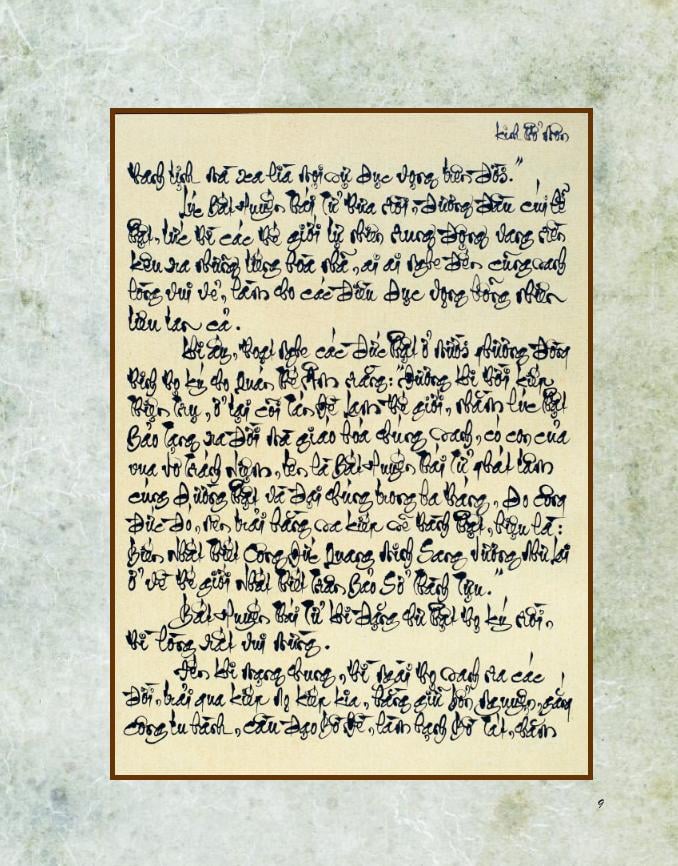 Kinh Phổ Môn
thanh tịnh mà xa lìa mọi sự dục vọng biến đổi."
Lúc Bất Huyền Thái Tử thưa rồi, đương đầu cúi lễ
Phật, tức thì các thế giới tự nhiên rung động vang rền
kêu ra những tiếng hòa nhã, ai ai nghe đến cũng sanh
lòng vui vẻ, làm cho các điều dục vọng bỗng nhiên
tiêu tan cả.
Khi ấy, thoạt nghe các Đức Phật ở mười phương đồng
thinh thọ ký cho Quán Thế Âm rằng: "Đương khi thời kiếp
Thiện Trụ, ở tại cõi Tán Đề Lam thế giới, nhằm lúc Phật
Bảo Tạng ra đời mà giáo hóa chúng sanh, có con của
vua Vô Tránh Niệm, tên là Bất Huyền Thái Tử phát tâm
cúng dường Phật và đại chúng trong ba tháng, do công
đức đó, nên trải hằng sa kiếp sẽ thành Phật, hiệu là:
Biến Nhất Thiết Công Đức Quang Minh Sang Vương Như Lai
ở về thế giới Nhất Thiết Trân Bảo Sở Thành Tựu."
Bất Huyền Thái Tử khi đặng chư Phật thọ ký rồi,
thì lòng rất vui mừng.
Đến khi mạng chung, thì ngài thọ sanh ra các
đời, trải qua kiếp nọ kiếp kia, hằng giữ bổn nguyện, gắng
công tu hành, cầu đạo Bồ đề, làm hạnh Bồ Tát, chăm
9